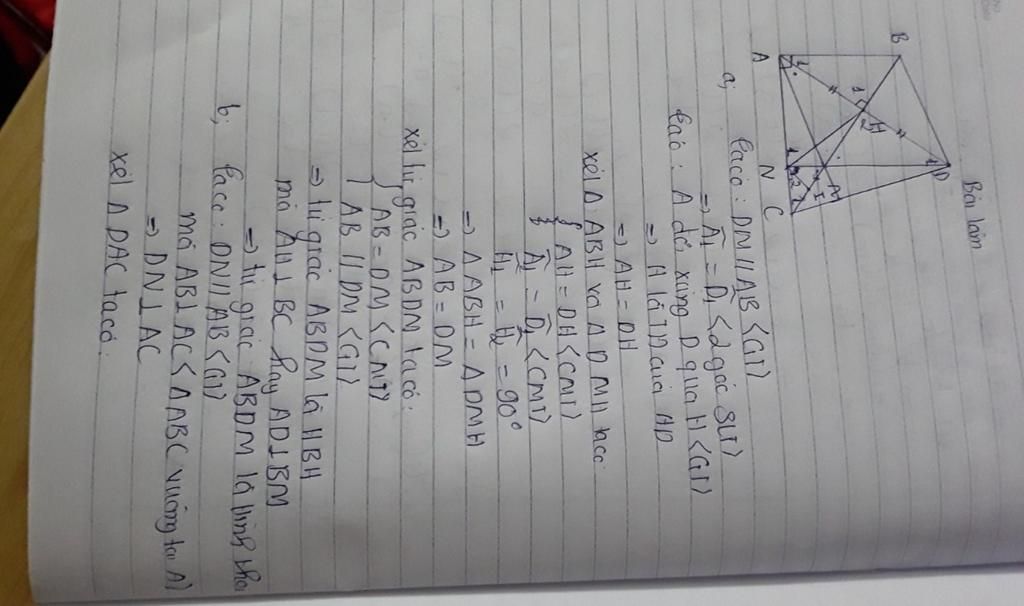 Bài làm
B
A
H
D
N
M
I
C
a,
ta có : DM // AB <GT>
=> Â1 = D̂1 <2 góc SLT>
ta có : A đối xứng D qua H <GT>
=> H là TĐ của AD
=> AH = DH
xét Δ ABH và Δ DMH ta có
AH = DH <CMT>
Â1 = D̂1 <CMT>
Ĥ1 = Ĥ2 = 90°
=> Δ ABH = Δ DMH
=> AB = DM
xét tứ giác ABDM ta có :
AB = DM <CMT>
AB // DM <GT>
=> tứ giác ABDM là HBH
mà AH ⊥ BC hay AD ⊥ BM
=> tứ giác ABDM là hình thoi
b, ta có : DN // AB <GT>
mà AB ⊥ AC < Δ ABC vuông tại A>
=> DN ⊥ AC
xét Δ DAC ta có :